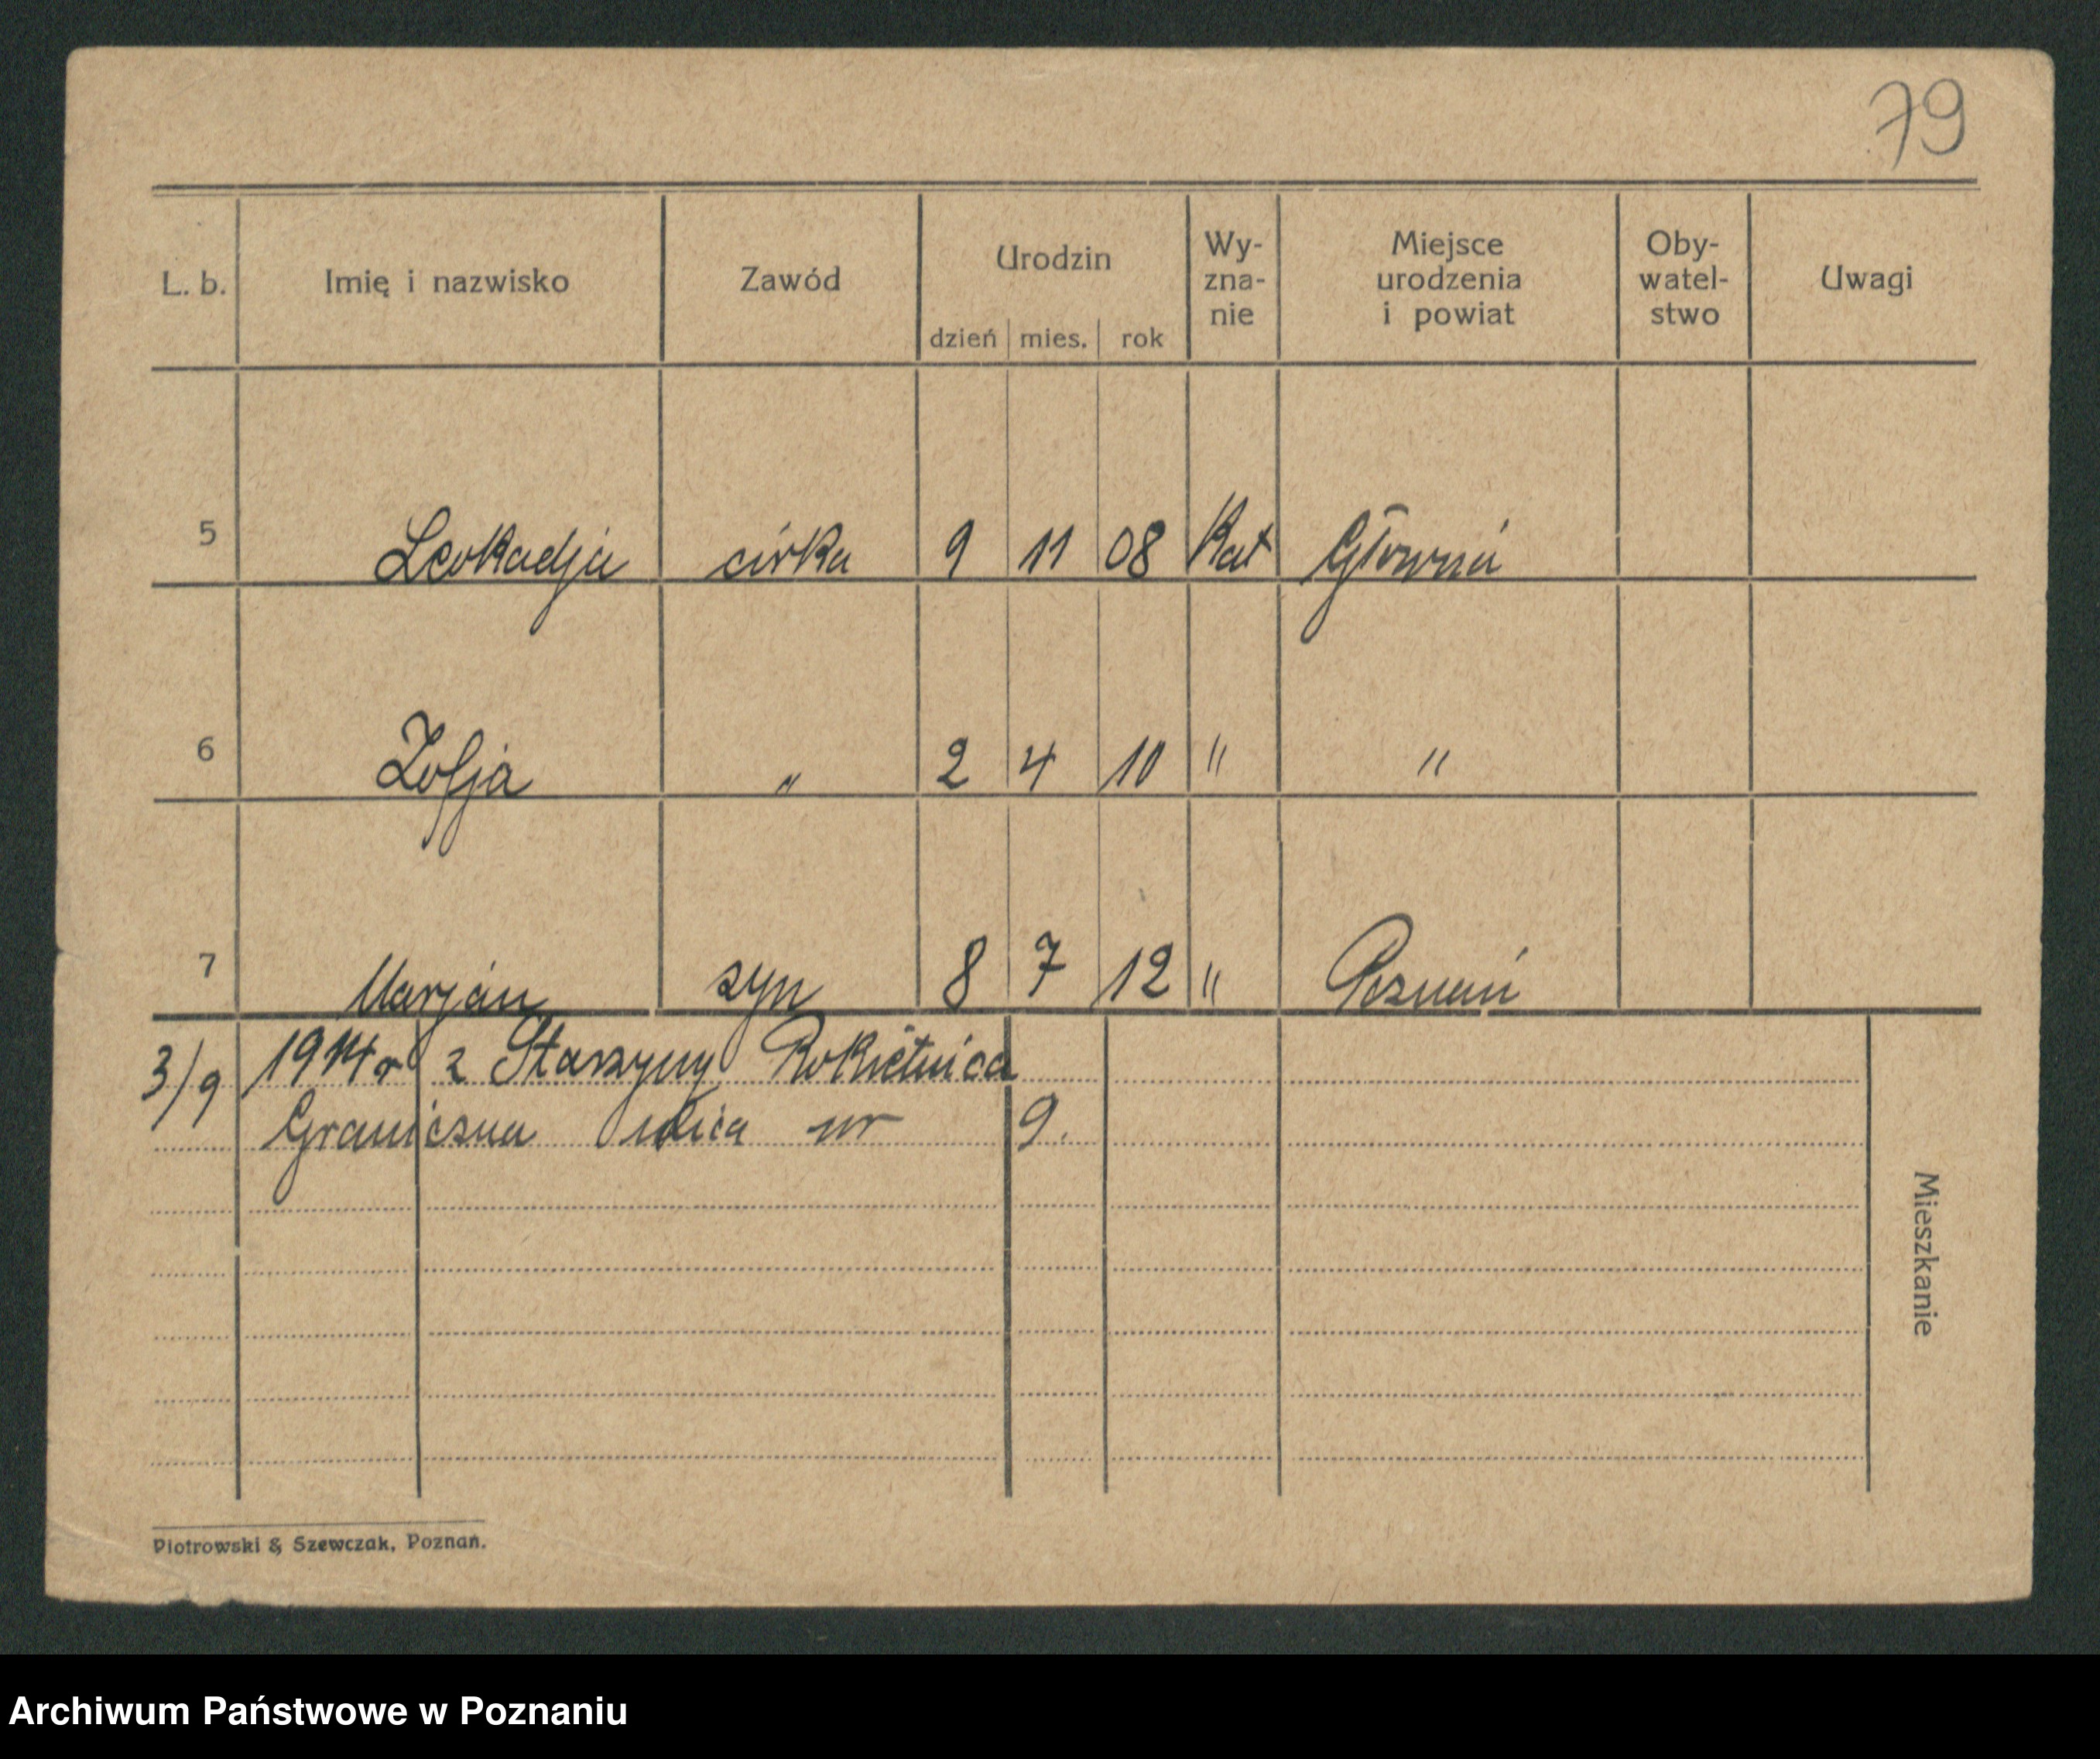 79
L. b. Imię i nazwisko Zawód Urodzin Wy-zna-nie Miejsce urodzenia i powiat Oby-watel-stwo Uwagi
dzień mies. rok
5 Leokadja córka 9 11 08 Kat Główna
6 Zofja " 2 4 10 " "
7 Marjan syn 8 7 12 " Poznań
3/9 1914 r z Rokietnica
Graniczna ulica nr 9.
Mieszkanie
Piotrowski & Szewczak, Poznań.
Archiwum Państwowe w Poznaniu